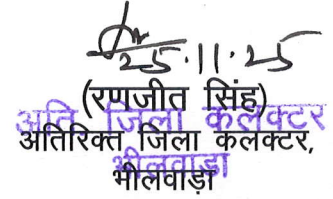 25.11.25
(रणजीत सिंह)
अति जिला कलेक्टर
अतिरिक्त जिला कलक्टर,
भीलवाड़ा
भीलवाड़ा